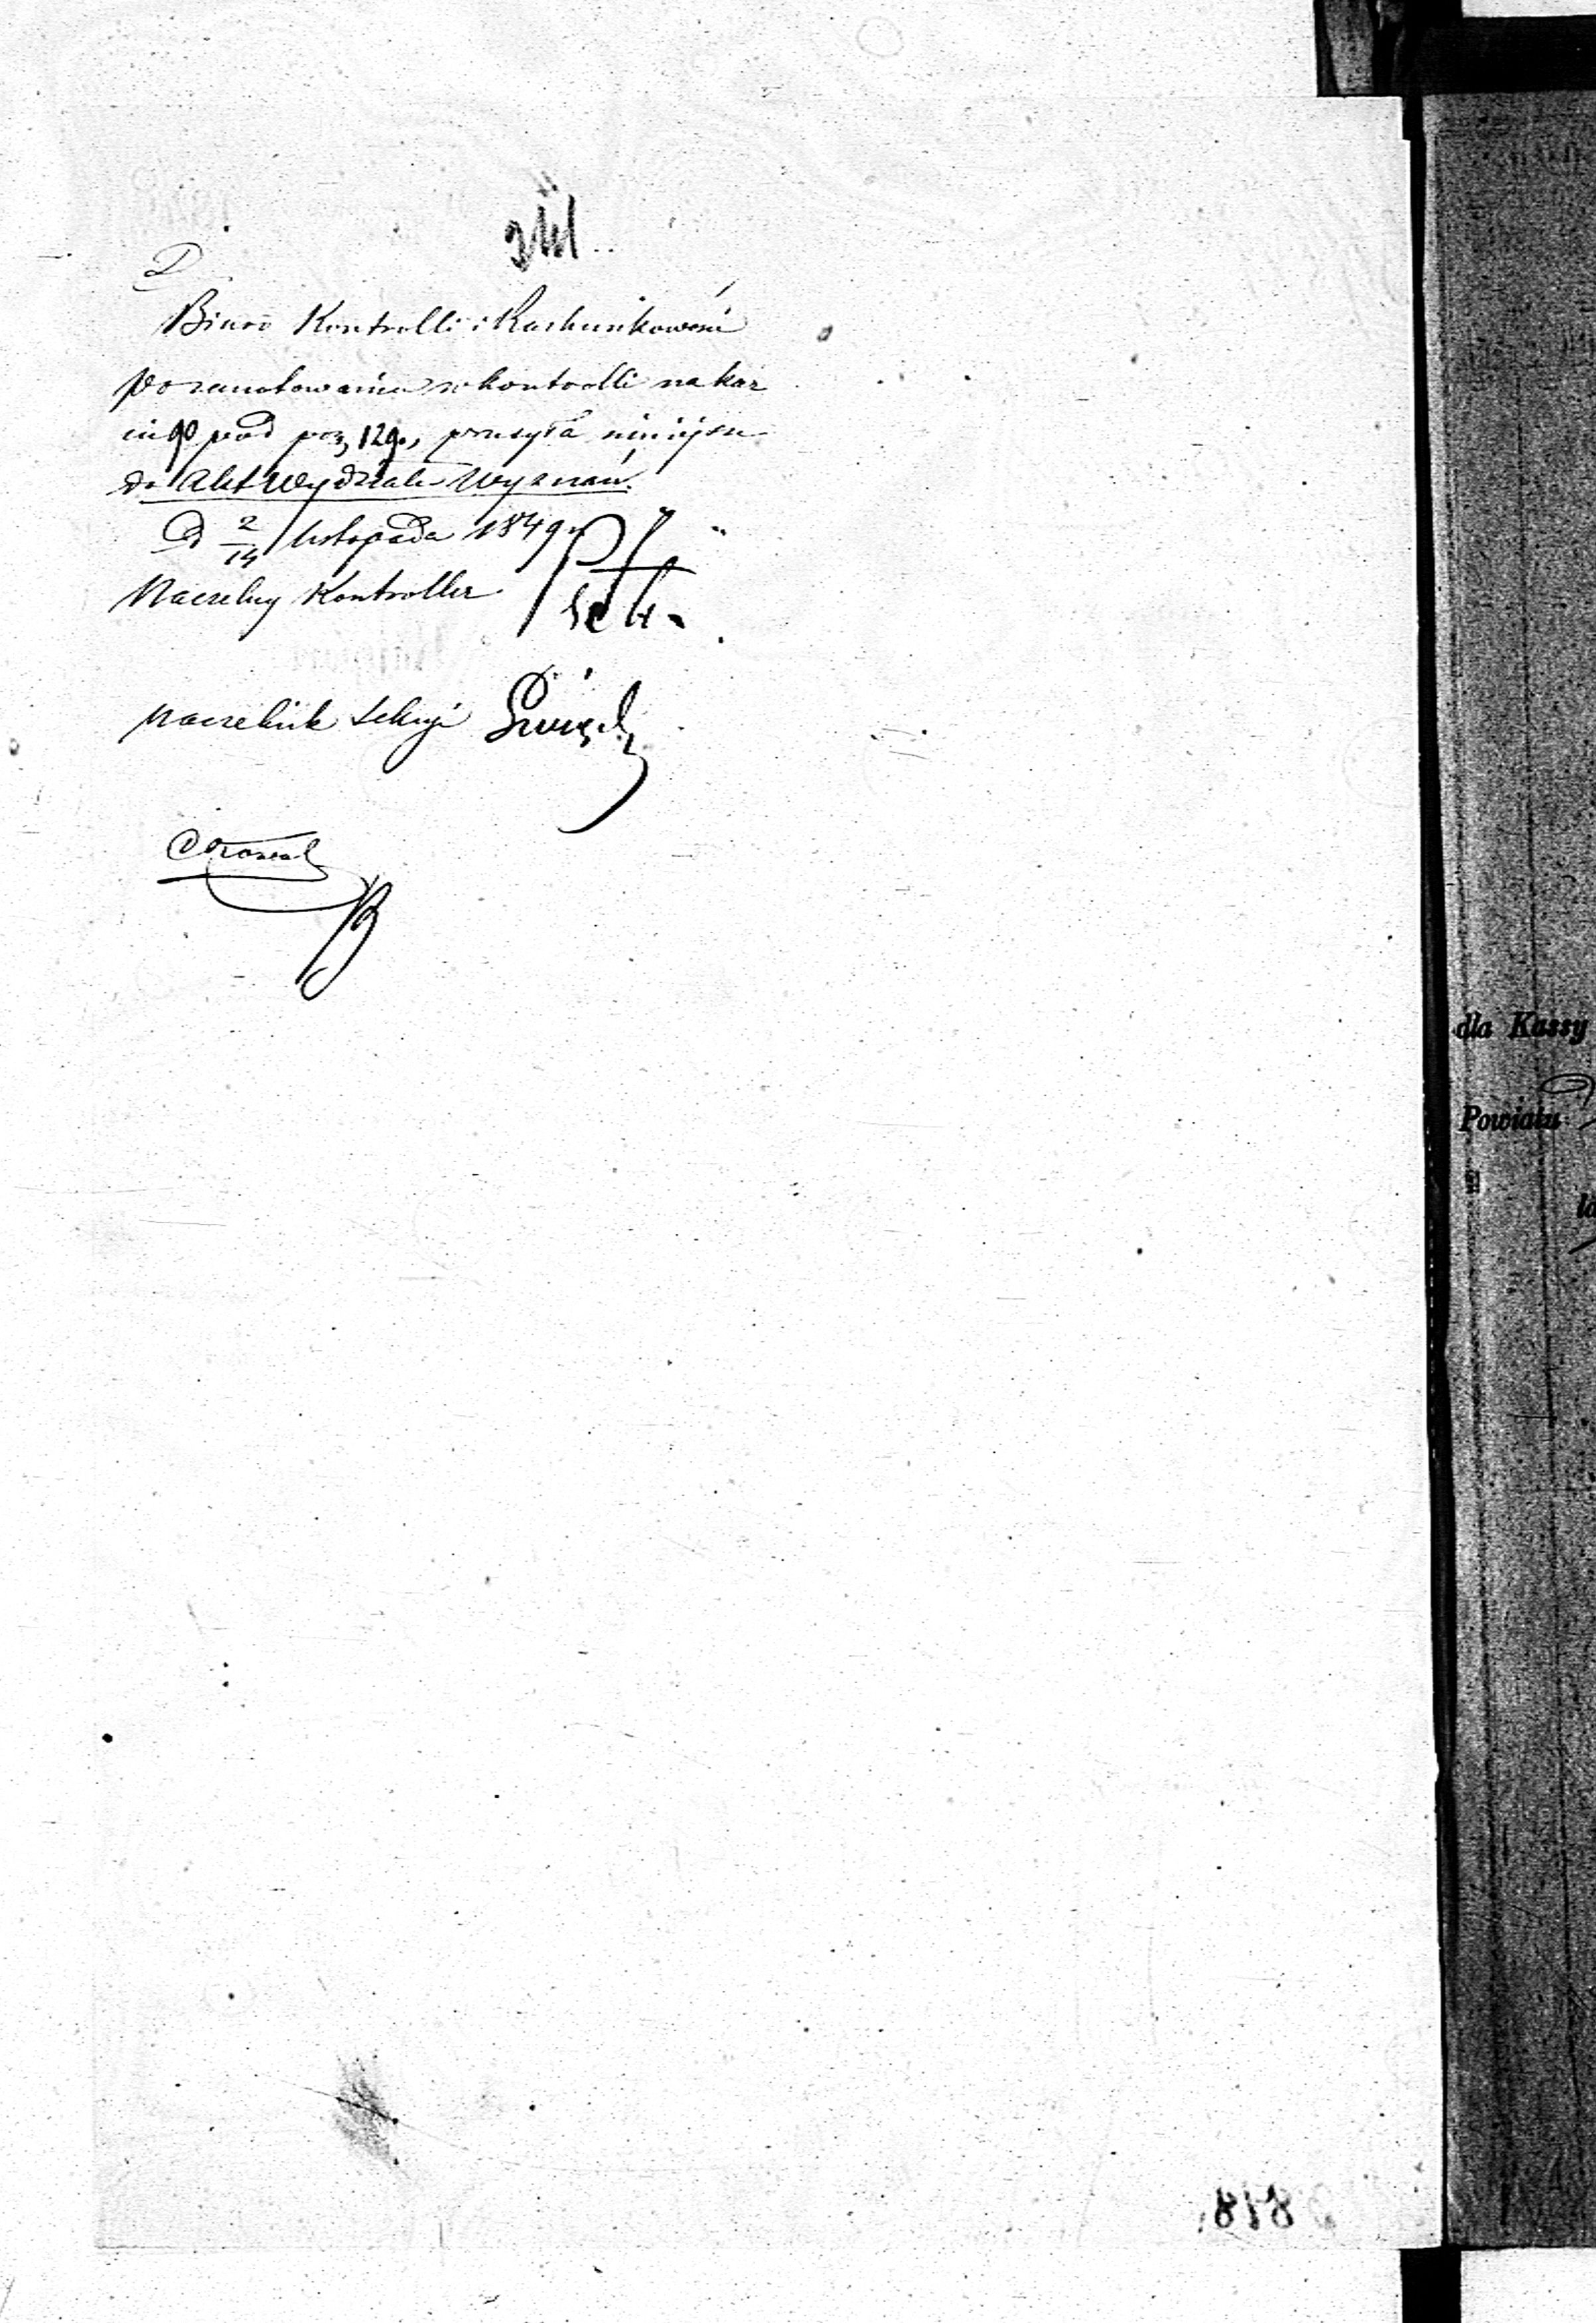 D
Biuro Kontrolli i Rachunkowości
po zanotowaniu w kontrolli na kar
cie 90 pod poz, 129, przesyła niniejsze
do Akt Wydziału Wyznań.
D 2/14 listopada 1849 r
Naczelny Kontroller
Naczelnik Sekcyi
dla Kassy
Powiatu